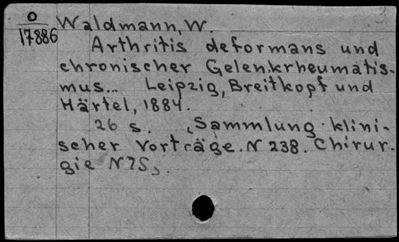 0
17886
Waldmann, W.
Arthritis deformans und
chronischer Gelenkrheumatis-
mus... Leipzig, Breitkopf und
Härtel, 1884.
26 s. „Sammlung klini-
scher Vorträge. N 238. Chirur-
gie N 75„